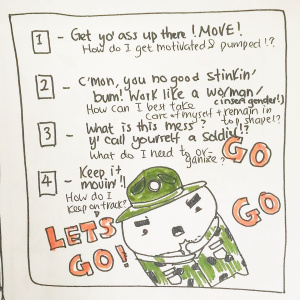 1 - Get yo' ass up there! MOVE!
How do I get motivated & pumped!?
2 - C'mon, you no good stinkin'
bum! Work like a wo/man/
(insert gender!)
How can I best take
care of myself + remain in
top shape!?
3 - What is this mess? &
y' call yourself a soldier!?
What do I need to or-
ganize?
GO
4 - Keep it
movin'!!
How do I
keep on track?
GO
LETS
GO!